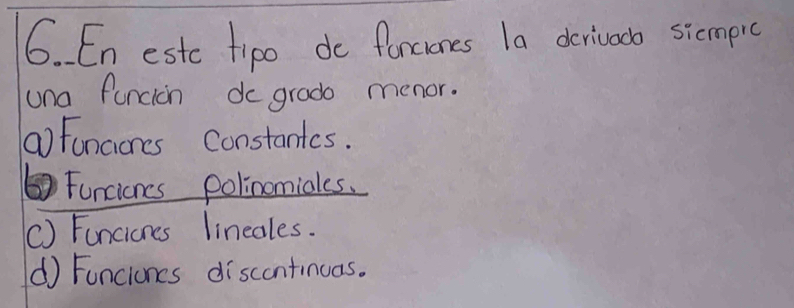 6._En este tipo de funciones la derivada siempre
una función de grado menor.
a) Funciones Constantes.
b) Funciones polinomiales.
c) Funciones lineales.
d) Funciones discontinuas.